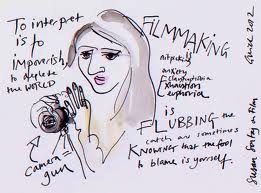 To interpret
is to
impoverish,
to deplete
the WORLD
camera =
gun
FILMMAKING
nitpicking
anxiety
Claustrophobia
Exhaustion
euphoria
is
FLUBBING the
catch and sometimes
KNOWING that the fool
to blame is yourself.
Susan Sontag on Film
2012